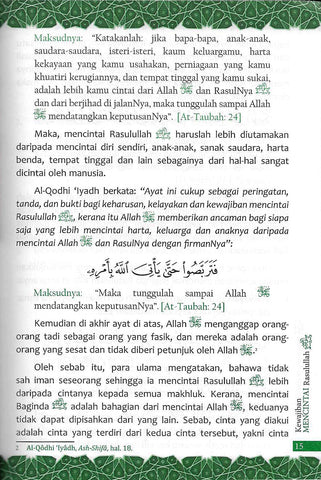 Maksudnya: "Katakanlah: jika bapa-bapa, anak-anak,
saudara-saudara, isteri-isteri, kaum keluargamu, harta
kekayaan yang kamu usahakan, perniagaan yang kamu
khuatiri kerugiannya, dan tempat tinggal yang kamu sukai,
adalah lebih kamu cintai dari Allah ﷻ dan RasulNya ﷺ
dan dari berjihad di jalanNya, maka tunggulah sampai Allah
ﷻ mendatangkan keputusanNya". [At-Taubah: 24]
Maka, mencintai Rasulullah ﷺ haruslah lebih diutamakan
daripada mencintai diri sendiri, anak-anak, sanak saudara, harta
benda, tempat tinggal dan lain sebagainya dari hal-hal sangat
dicintai oleh manusia.
Al-Qodhi 'Iyadh berkata: "Ayat ini cukup sebagai peringatan,
tanda, dan bukti bagi keharusan, kelayakan dan kewajiban mencintai
Rasulullah ﷺ, kerana itu Allah ﷻ memberikan ancaman bagi siapa
saja yang lebih mencintai harta, keluarga dan anaknya daripada
mencintai Allah ﷻ dan RasulNya dengan firmanNya":
فَتَرَبَّصُوا۟ حَتَّىٰ يَأْتِىَ ٱللَّهُ بِأَمْرِهِۦ
Maksudnya: "Maka tunggulah sampai Allah ﷻ
mendatangkan keputusanNya". [At-Taubah: 24]
Kemudian di akhir ayat di atas, Allah ﷻ menganggap orang-
orang tadi sebagai orang yang fasik, dan mereka adalah orang-
orang yang sesat dan tidak diberi petunjuk oleh Allah ﷻ.²
Oleh sebab itu, para ulama mengatakan, bahawa tidak
sah iman seseorang sehingga ia mencintai Rasulullah ﷺ lebih
daripada cintanya kepada semua makhluk. Kerana, mencintai
Baginda ﷺ adalah bahagian dari mencintai Allah ﷻ, keduanya
tidak dapat dipisahkan dari yang lain. Sebab, cinta yang diakui
adalah cinta yang terdiri dari kedua cinta tersebut, yakni cinta
2 Al-Qôdhi 'Iyâdh, Ash-Shifâ, hal. 18.
Kewajiban
MENCINTAI Rasulullah ﷺ
15